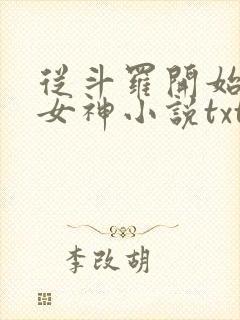 從斗羅開始
女神小說txt
李改胡